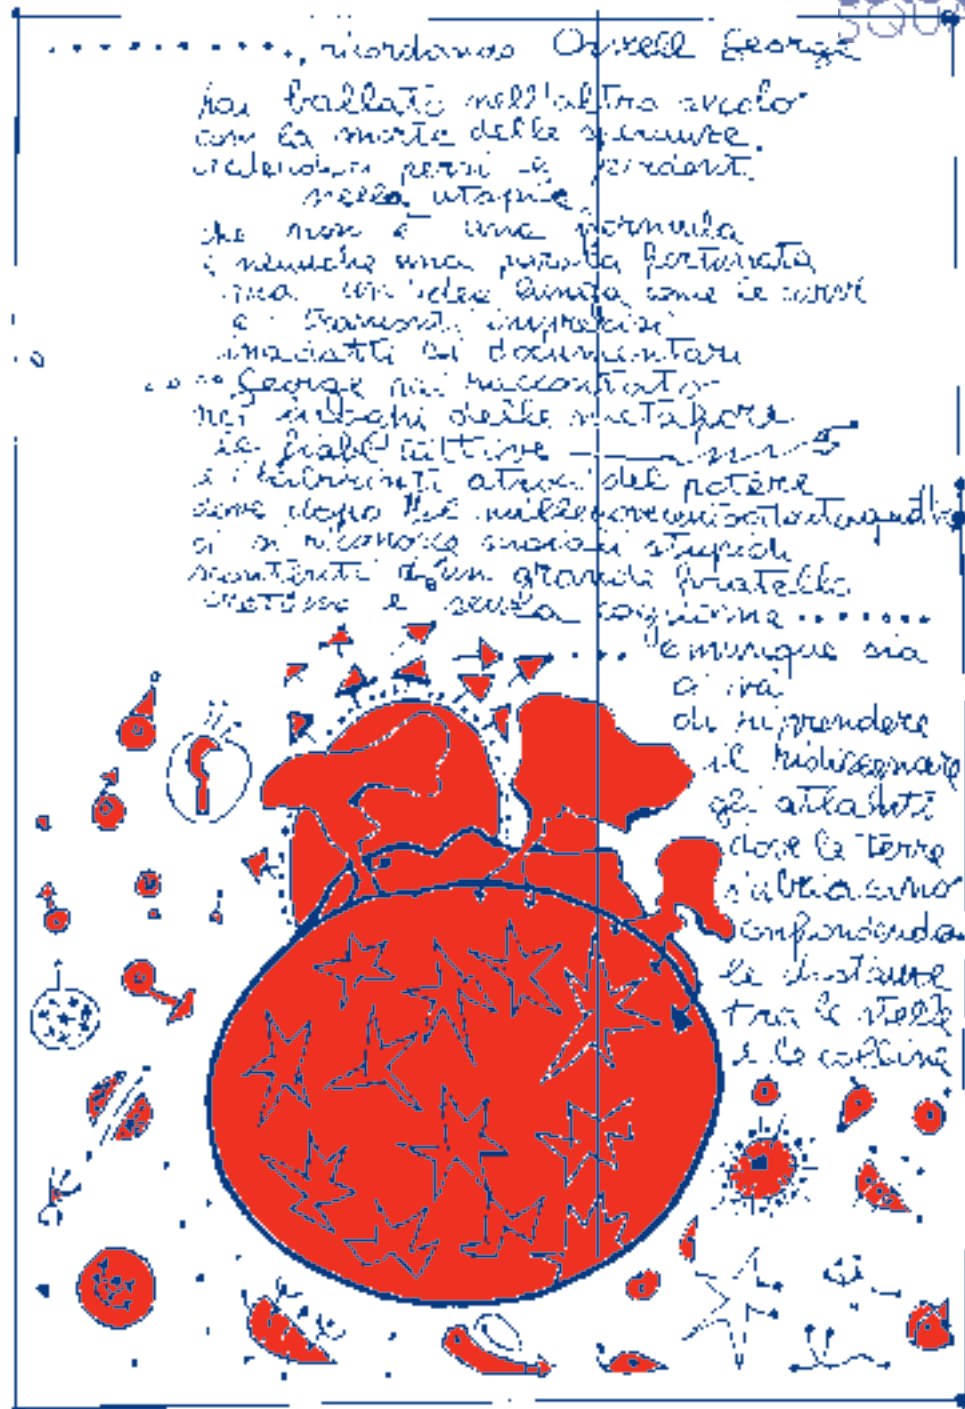 SQU
........., ricordando Orwell George
hai ballato nell'altro secolo
con la morte delle speranze
perni perdenti
nella utopia
che non è una formula
è neanche una parola fortunata
ma un'idea lunga come le curve
e tramonti imprecisi
inadatti ai documentari
.... George hai raccontato
delle metafore
le fiabe cattive
e i labirinti atroci del potere
dove dopo il millenovecentottantaquattro
ci si riconosce stupidi
scontenti d'un grande fratello
cretino e senza cognome .......
.... comunque sia
ci va
di riprendere
il ridisegnare
gli atlanti
dove le terre
s'ubriacano
confondendo
le distanze
tra le stelle
e le colline